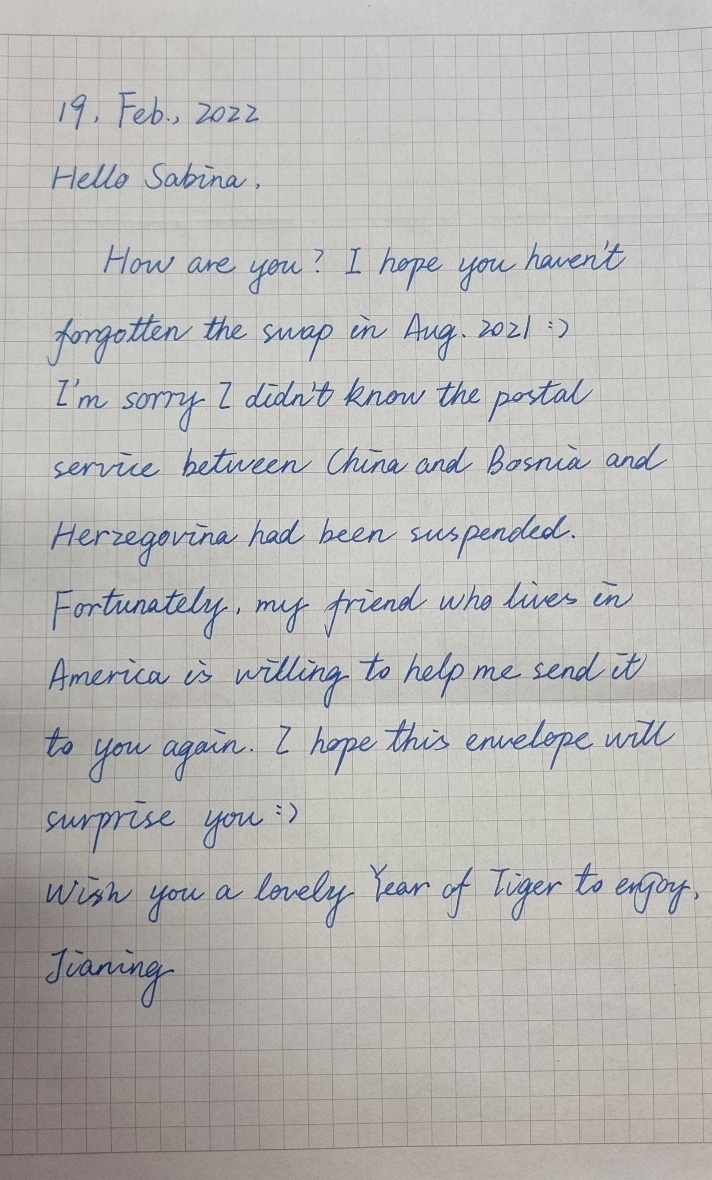 19. Feb., 2022
Hello Sabina,
How are you? I hope you haven't
forgotten the swap in Aug. 2021 :)
I'm sorry I didn't know the postal
service between China and Bosnia and
Herzegovina had been suspended.
Fortunately, my friend who lives in
America is willing to help me send it
to you again. I hope this envelope will
surprise you :)
Wish you a lovely Year of Tiger to enjoy,
Jianing